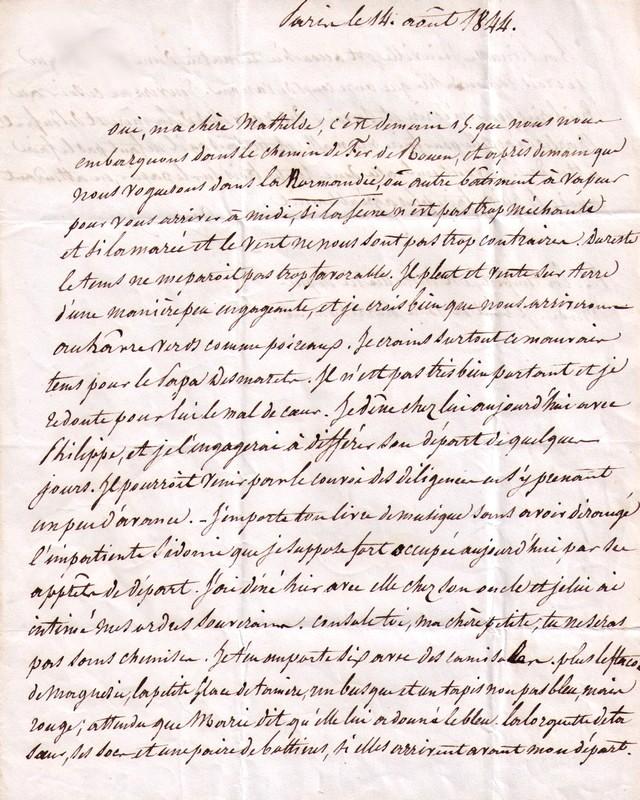 Paris le 14. août 1844.
oui, ma chère Mathilde, c'est demain 15. que nous nous
embarquons dans le chemin de Fer de Rouen, et après demain que
nous voguerons dans la Normandie, où autre bâtiment à vapeur
pour vous arriver à midi, si la seine n'est pas trop méchante
et si la marée et le vent ne nous sont pas trop contraires. Du reste
le tems ne me paroit pas trop favorable. Il pleut et vente sur terre
d'une manière peu engageante, et je crois bien que nous arriverons
au hâvre verds comme poireaux. Je crains surtout ce mauvais
tems pour le Papa Desmarets. Il n'est pas très bien portant et je
redoute pour lui le mal de cœur. Je dîne chez lui aujourd'hui avec
Philippe, et je l'engagerai à différer son départ de quelques
jours. Il pourroit venir par le convoi des diligences en s'y prenant
un peu d'avance. - J'emporte ton livre de musique sans avoir dérangé
l'impatiente Sidonie que je suppose fort occupée aujourd'hui par ses
apprêts de départ. J'ai dîné hier avec elle chez son oncle et je lui ai
intimé mes ordres souverains. Console toi, ma chère petite, tu ne seras
pas sans chemises. Je t'en emporte six avec des camisoles. plus le flacon
de Magnésie, la petite glace de toinie, un busque et un tapis non pas bleu, mais
rouge; attendu que Marie dit qu'elle lui a donné le bleu. la lorgnette de ta
sœur, ses socs et une paire de bottines, si elles arrivent avant mon départ.